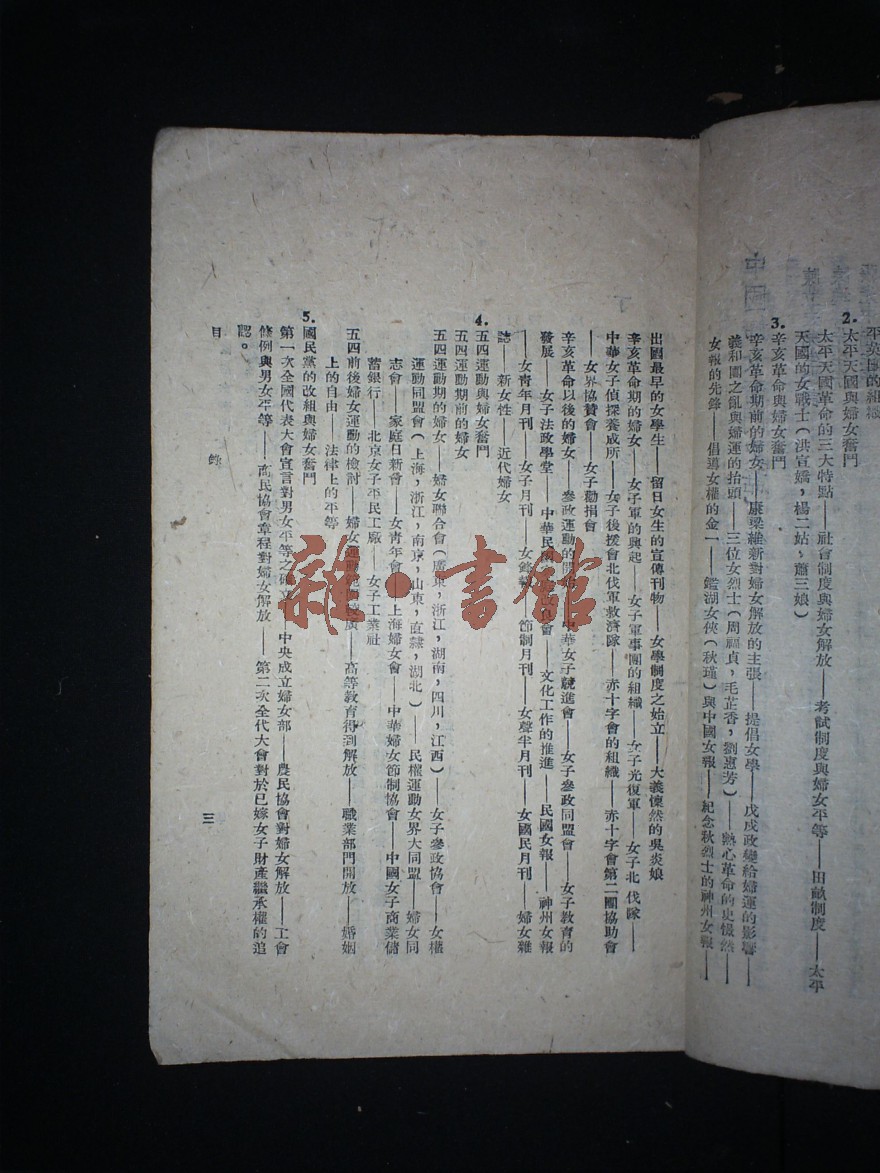 2.
太平天國與婦女奮鬥
太平天國革命的三大特點——社會制度與婦女解放——考試制度與婦女平等——田畝制度——太平
天國的女戰士(洪宣嬌,楊二姑,蕭三娘)
3.
辛亥革命與婦女奮鬥
辛亥革命期前的婦女——康梁維新對婦女解放的主張——提倡女學——戊戌政變給婦運的影響——
義和團之亂與婦運的抬頭——三位女烈士(周福貞,毛芷香,劉惠芳)——熱心革命的史憬然——
女報的先鋒——倡導女權的金一——鑑湖女俠(秋瑾)與中國女報——紀念秋烈士的神州女報——
出國最早的女學生——留日女生的宣傳刊物——女學制度之始立——大義懍然的吳炎娘
辛亥革命期的婦女——女子軍的興起——女子軍事團的組織——女子光復軍——女子北伐隊——
中華女子偵探養成所——女子後援會北伐軍救濟隊——赤十字會的組織——赤十字會第二團協助會
——女界協贊會——女子勸捐會
辛亥革命以後的婦女——參政運動的開始——中華女子競進會——女子參政同盟會——女子教育的
發展——女子法政學堂——中華民國 會——文化工作的推進——民國女報——神州女報
——女青年月刊——女子月刊——女鐸報——節制月刊——女聲半月刊——女國民月刊——婦女雜
誌——新女性——近代婦女
4.
五四運動與婦女奮鬥
五四運動期前的婦女
五四運動期的婦女——婦女聯合會(廣東,浙江,湖南,四川,江西)——女子參政協會——女權
運動同盟會(上海,浙江,南京,山東,直隸,湖北)——民權運動女界大同盟——婦女同
志會——家庭日新會——女青年會——上海婦女會——中華婦女節制協會——中國女子商業儲
蓄銀行——北京女子平民工廠——女子工業社
五四前後婦女運動的檢討——婦女運動 ——高等教育得到解放——職業部門開放——婚姻
上的自由——法律上的平等
5.
國民黨的改組與婦女奮鬥
第一次全國代表大會宣言對男女平等之確立——中央成立婦女部——農民協會對婦女解放——工會
條例與男女平等——商民協會章程對婦女解放——第二次全代大會對於已嫁女子財產繼承權的追
認。
目錄
三
雜·書館